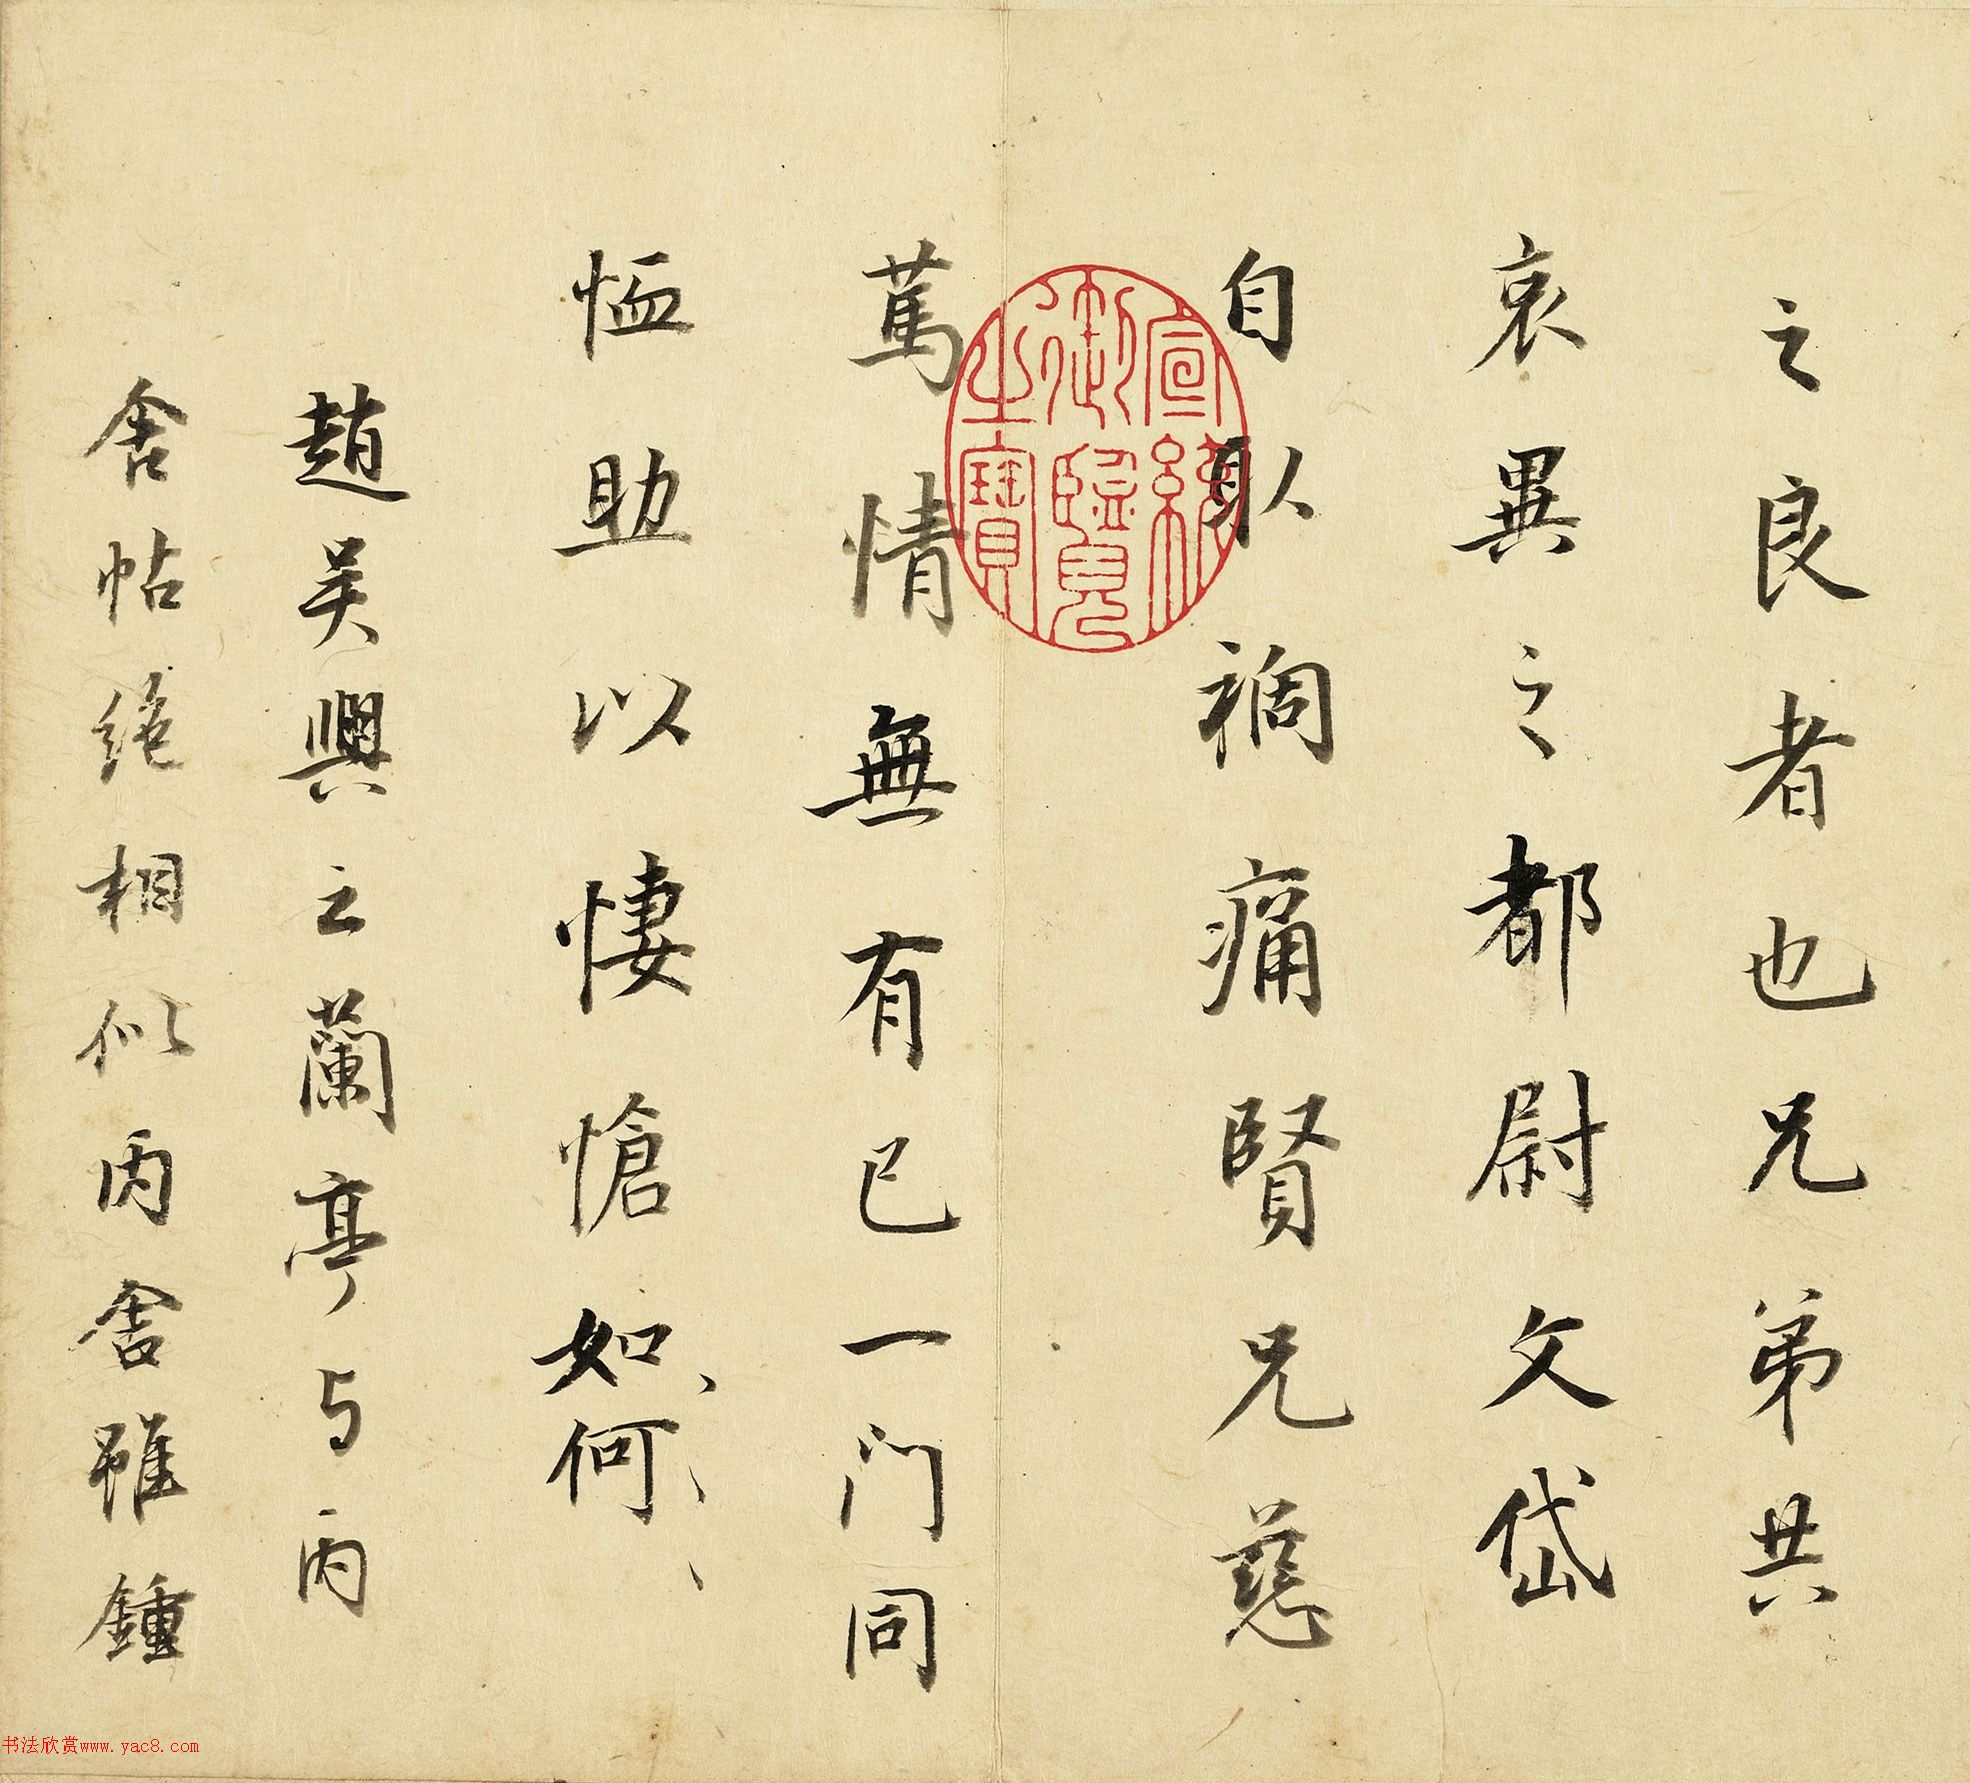 之良者也兄弟共
哀異之都尉文岱
自取禍痛賢兄慈
篤情無有已一門同
恤助以悽愴如何、、、
趙吳興之蘭亭与丙
舍帖絕相似丙舍雖鍾
宣統
御覽
之寶
书法欣赏www.yac8.com